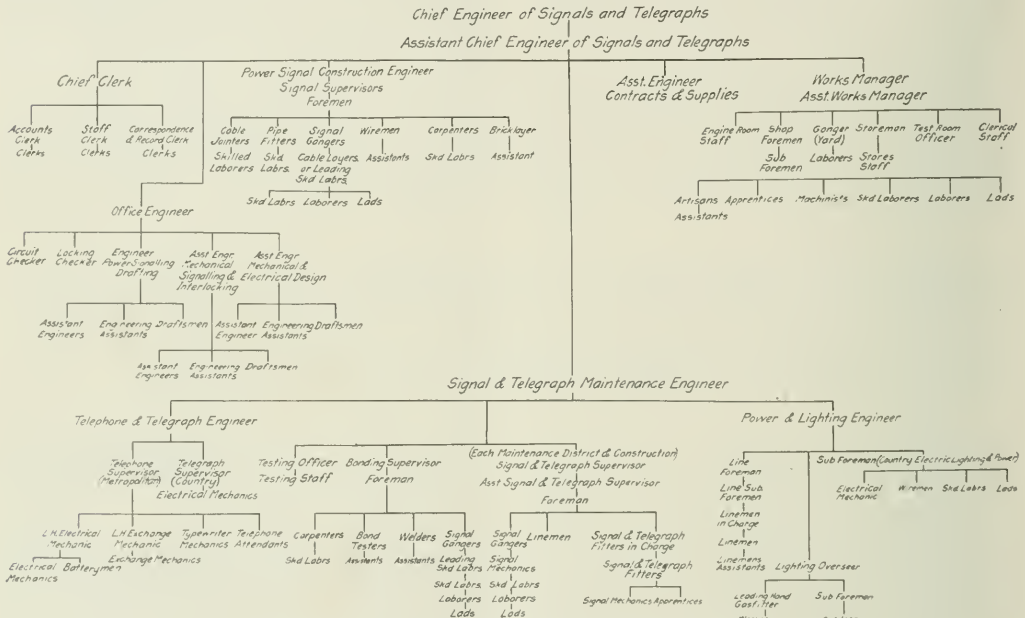 Chief Engineer of Signals and Telegraphs
Assistant Chief Engineer of Signals and Telegraphs
Chief Clerk
Accounts
Clerk
Clerks
Staff
Clerk
Clerks
Correspondence
& Record Clerk
Clerks
Power Signal Construction Engineer
Signal Supervisors
Foremen
Cable
Jointers
Skilled
Laborers
Pipe
Fitters
Skd
Labrs.
Signal
Gangers
Cable Layers
or Leading
Skd Labrs.
Skd Labrs
Laborers
Lads
Wiremen
Assistants
Carpenters
Skd Labrs
Bricklayer
Assistant
Asst. Engineer
Contracts & Supplies
Works Manager
Asst. Works Manager
Engine Room
Staff
Shop
Foremen
Sub
Foremen
Ganger
(Yard)
Laborers
Storeman
Stores
Staff
Test Room
Officer
Clerical
Staff
Artisans
Assistants
Apprentices
Machinists
Skd Laborers
Laborers
Lads
Office Engineer
Circuit
Checker
Locking
Checker
Engineer
Power Signalling
Drafting
Asst Engr
Mechanical
Signalling &
Interlocking
Asst Engr
Mechanical &
Electrical Design
Assistant
Engineers
Engineering
Assistants
Draftsmen
Assistant
Engineer
Engineering
Assistants
Draftsmen
Assistant
Engineers
Engineering
Assistants
Draftsmen
Signal & Telegraph Maintenance Engineer
Telephone & Telegraph Engineer
Telephone
Supervisor
(Metropolitan)
Telegraph
Supervisor
(Country)
Electrical Mechanics
L.H. Electrical
Mechanic
Electrical
Mechanics
Batterymen
L.H. Exchange
Mechanic
Exchange Mechanics
Typewriter
Mechanics
Telephone
Attendants
Testing Officer
Testing Staff
Bonding Supervisor
Foreman
Carpenters
Skd Labrs
Bond
Testers
Assistants
Welders
Assistants
Signal
Gangers
Leading
Skd Labrs
Skd Labrs.
Laborers
Lads
(Each Maintenance District & Construction)
Signal & Telegraph Supervisor
Asst Signal & Telegraph Supervisor
Foreman
Signal
Gangers
Signal
Mechanics
Skd Labrs
Laborers
Lads
Linemen
Signal & Telegraph
Fitters in Charge
Signal & Telegraph
Fitters
Signal Mechanics
Apprentices
Power & Lighting Engineer
Line
Foreman
Line Sub
Foremen
Linemen
in Charge
Linemen
Linemens
Assistants
Lighting Overseer
Leading Hand
Gasfitter
Sub Foreman
Sub Foreman (Country Electric Lighting & Power)
Electrical
Mechanic
Wiremen
Skd Labrs
Lads